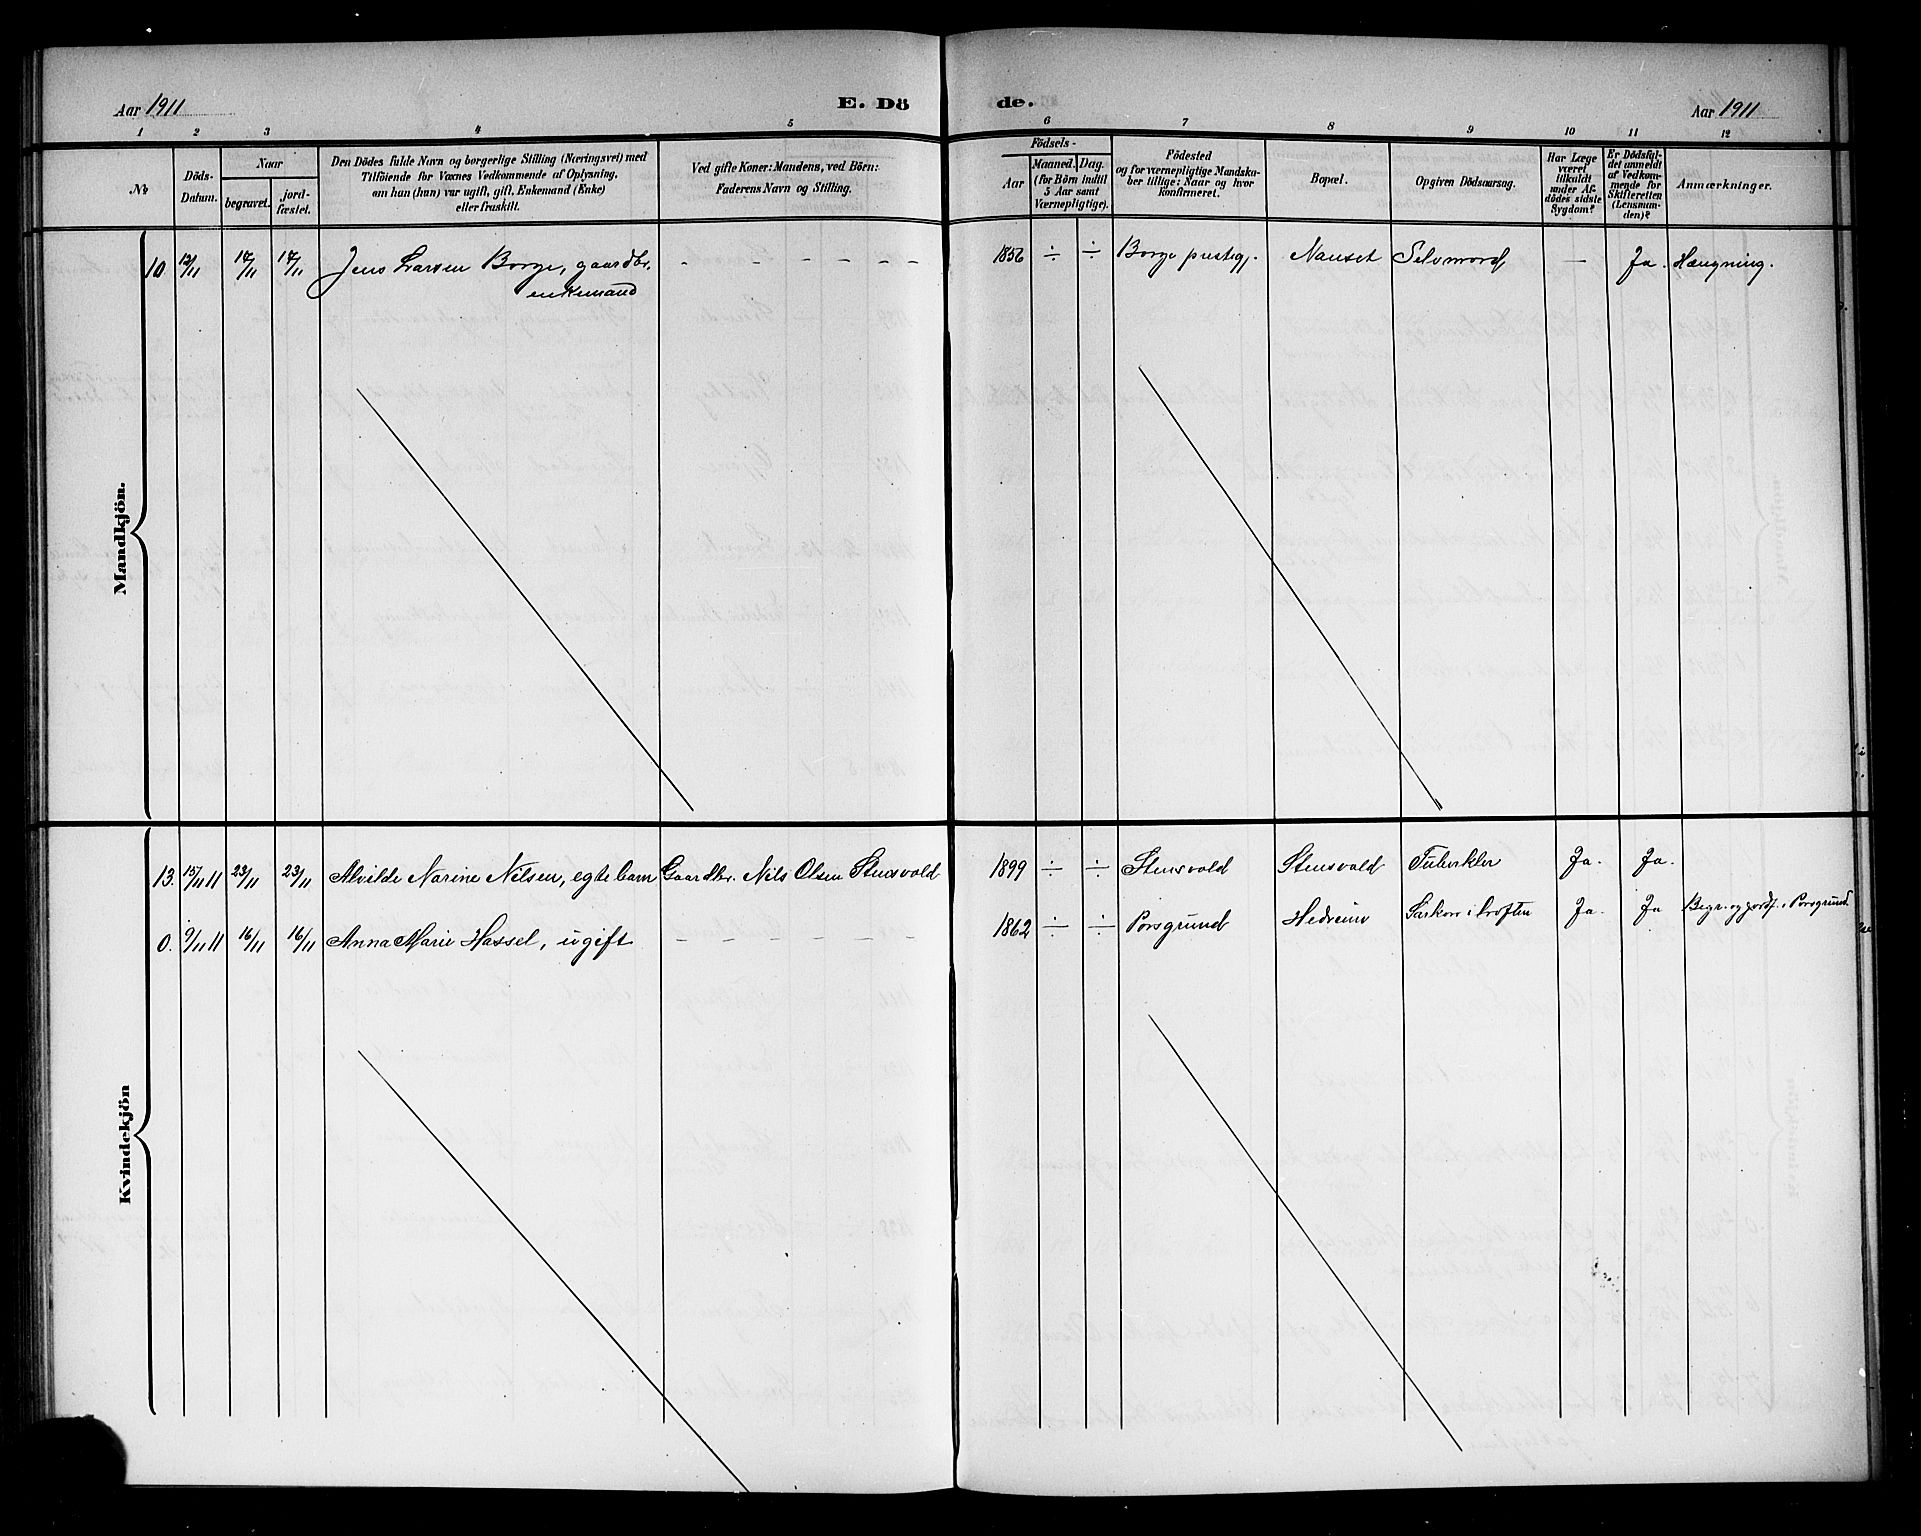 Aar 1911 E. Dö de. Aar 1911
1 2 3 4 5 6 7 8 9 10 11 12
No
Döds-
Datum.
Naar
begravet.
jord-
fæstet.
Den Dödes fulde Navn og borgerlige Stilling (Næringsvei) med
Tilföiende for Voxnes Vedkommende af Oplysning,
om han (hun) var ugift, gift, Enkemand (Enke)
eller fraskilt.
Ved gifte Koner: Mandens, ved Börn:
Faderens Navn og Stilling.
Födsels-
Aar
Maaned. Dag.
(for Börn indtil
5 Aar samt
Værnepligtige).
Födested
og for værnepligtige Mandska-
ber tillige: Naar og hvor
konfirmeret.
Bopæl.
Opgiven Dödsaarsag.
Har Læge
været
tilkaldt
under Af-
dödes sidste
Sygdom?
Er Dödsfal-
det anmeldt
af Vedkom-
mende for
Skifteretten
(Lensman-
den)?
Anmærkninger.
Mandkjön.
10 12/11 17/11 17/11 Jens Larsen Borge, gaardbr. - - - - - - - 1856 ÷ ÷ Borge prestegj. Nanset Selvmord — Ja. Hængning.
enkemand
Kvindekjön
13. 15/11 11 23/11 23/11 Alvilde Narine Nilsen, egte barn Gaardbr. Nils Olsen Stensvold 1899 ÷ ÷ Stensvold Stensvold Tuberkler Ja. Ja.
0. 9/11 11 16/11 16/11 Anna Marie Hassel, ugift - - - - - - - 1862 ÷ ÷ Porsgrund Hedrum Sarkom i hoften Ja. Ja Begr. og jordf. i Porsgrund.